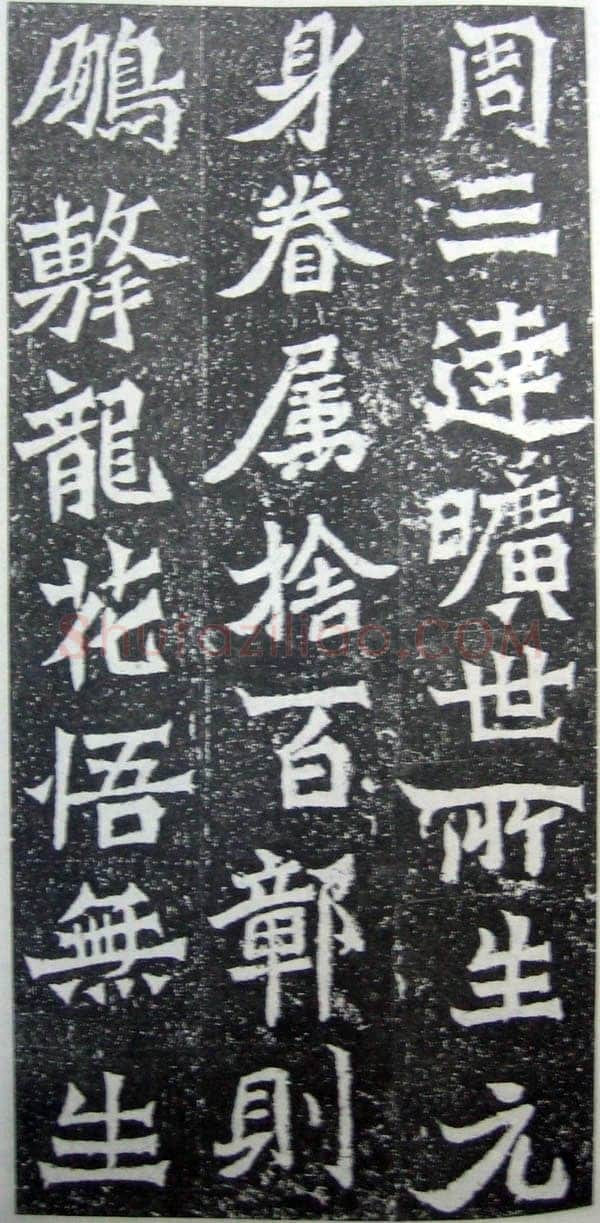 周三達曠世所生元
身眷属捨百鄣則
鵬擊龍花悟無生
Shufaziliao.COM